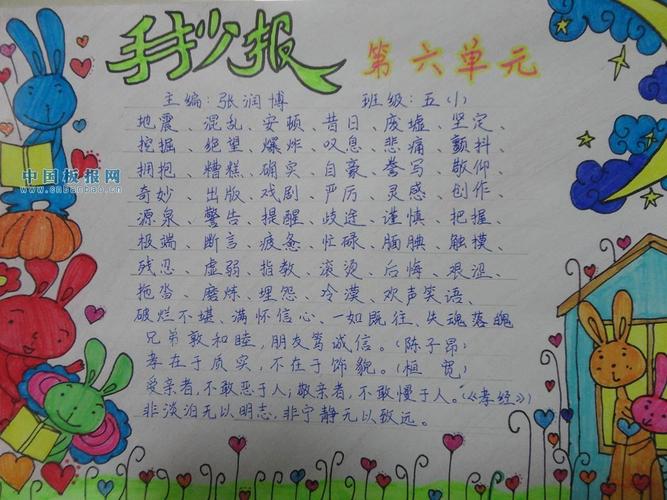 手抄报
第六单元
主编:张润博 班级:五(1)
中国板报网
www.cnbanbao.cn
地震、混乱、安顿、昔日、废墟、坚定、
挖掘、绝望、爆炸、叹息、悲痛、颤抖、
拥抱、糟糕、确实、自豪、誊写、敬仰
奇妙、出版、戏剧、严厉、灵感、创作、
源泉、警告、提醒、歧途、谨慎、把握、
极端、断言、疲惫、忙碌、腼腆、触摸、
残忍、虚弱、指教、滚烫、后悔、艰涩、
拖沓、磨炼、埋怨、冷漠、欢声笑语、
破烂不堪、满怀信心、一如既往、失魂落魄
兄弟敦和睦,朋友笃诚信。(陈子昂)
孝在于质实,不在于饰貌。(桓宽)
爱亲者,不敢恶于人;敬亲者,不敢慢于人。(《孝经》)
非淡泊无以明志,非宁静无以致远。